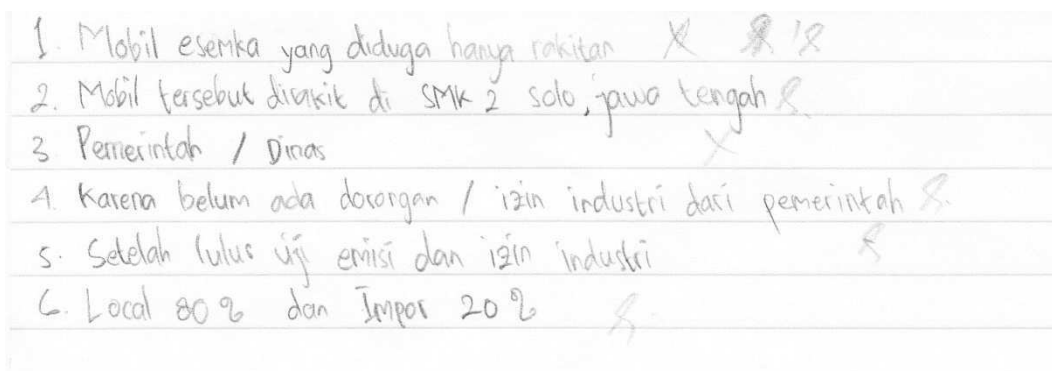 1. Mobil esemka yang diduga hanya rakitan
2. Mobil tersebut dirakit di SMK 2 solo, jawa tengah
3 Pemerintah / Dinas
4. Karena belum ada dorongan / izin industri dari pemerintah
5. Setelah lulus uji emisi dan izin industri
6. Local 80 % dan Impor 20 %